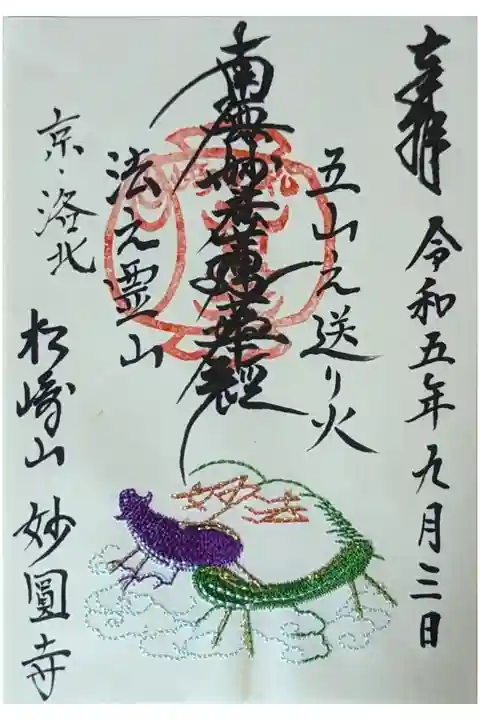 奉拝
令和五年九月三日
五山之送り火
南無妙法蓮華経
法之霊山
京・洛北
松崎山 妙圓寺
妙法